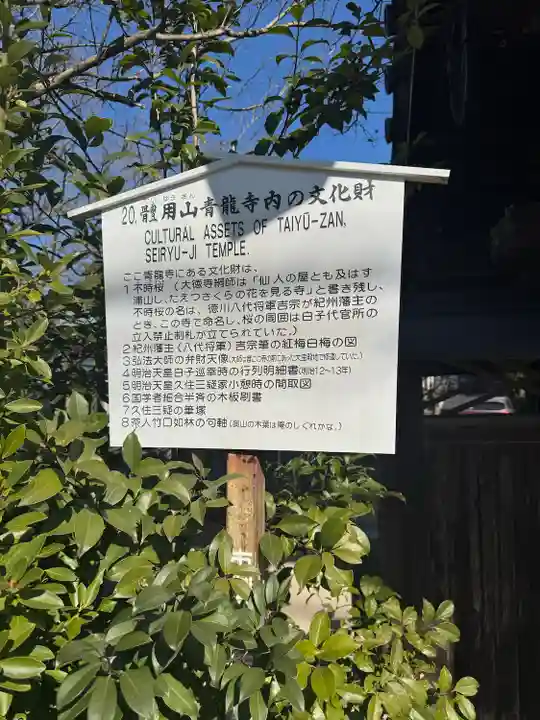 たいゆうざん
20.體用山青龍寺内の文化財
CULTURAL ASSETS OF TAIYŪ-ZAN,
SEIRYU-JI TEMPLE.
ここ青龍寺にある文化財は、
1 不時桜(大徳寺綱師は「仙人の屋とも及はす
浦山し、たえつさくらの花を見る寺」と書き残し、
不時桜の名は、徳川八代将軍吉宗が紀州藩主の
とき、この寺で命名し、桜の周囲は白子代官所の
立入禁止制札が立てられていた。)
2 紀州藩主(八代将軍)吉宗筆の紅梅白梅の図
3 弘法大師の弁財天像(大師は昔この寺の前にあった大宝院地で修道していた。)
4 明治天皇白子巡幸時の行列明細書(明治12~13年)
5 明治天皇久住三疑家小憩時の間取図
6 国学者細合半斉の木板刷書
7 久住三疑の筆塚
8 茶人竹口如林の句軸(奥山の木葉は庵のしぐれかな。)